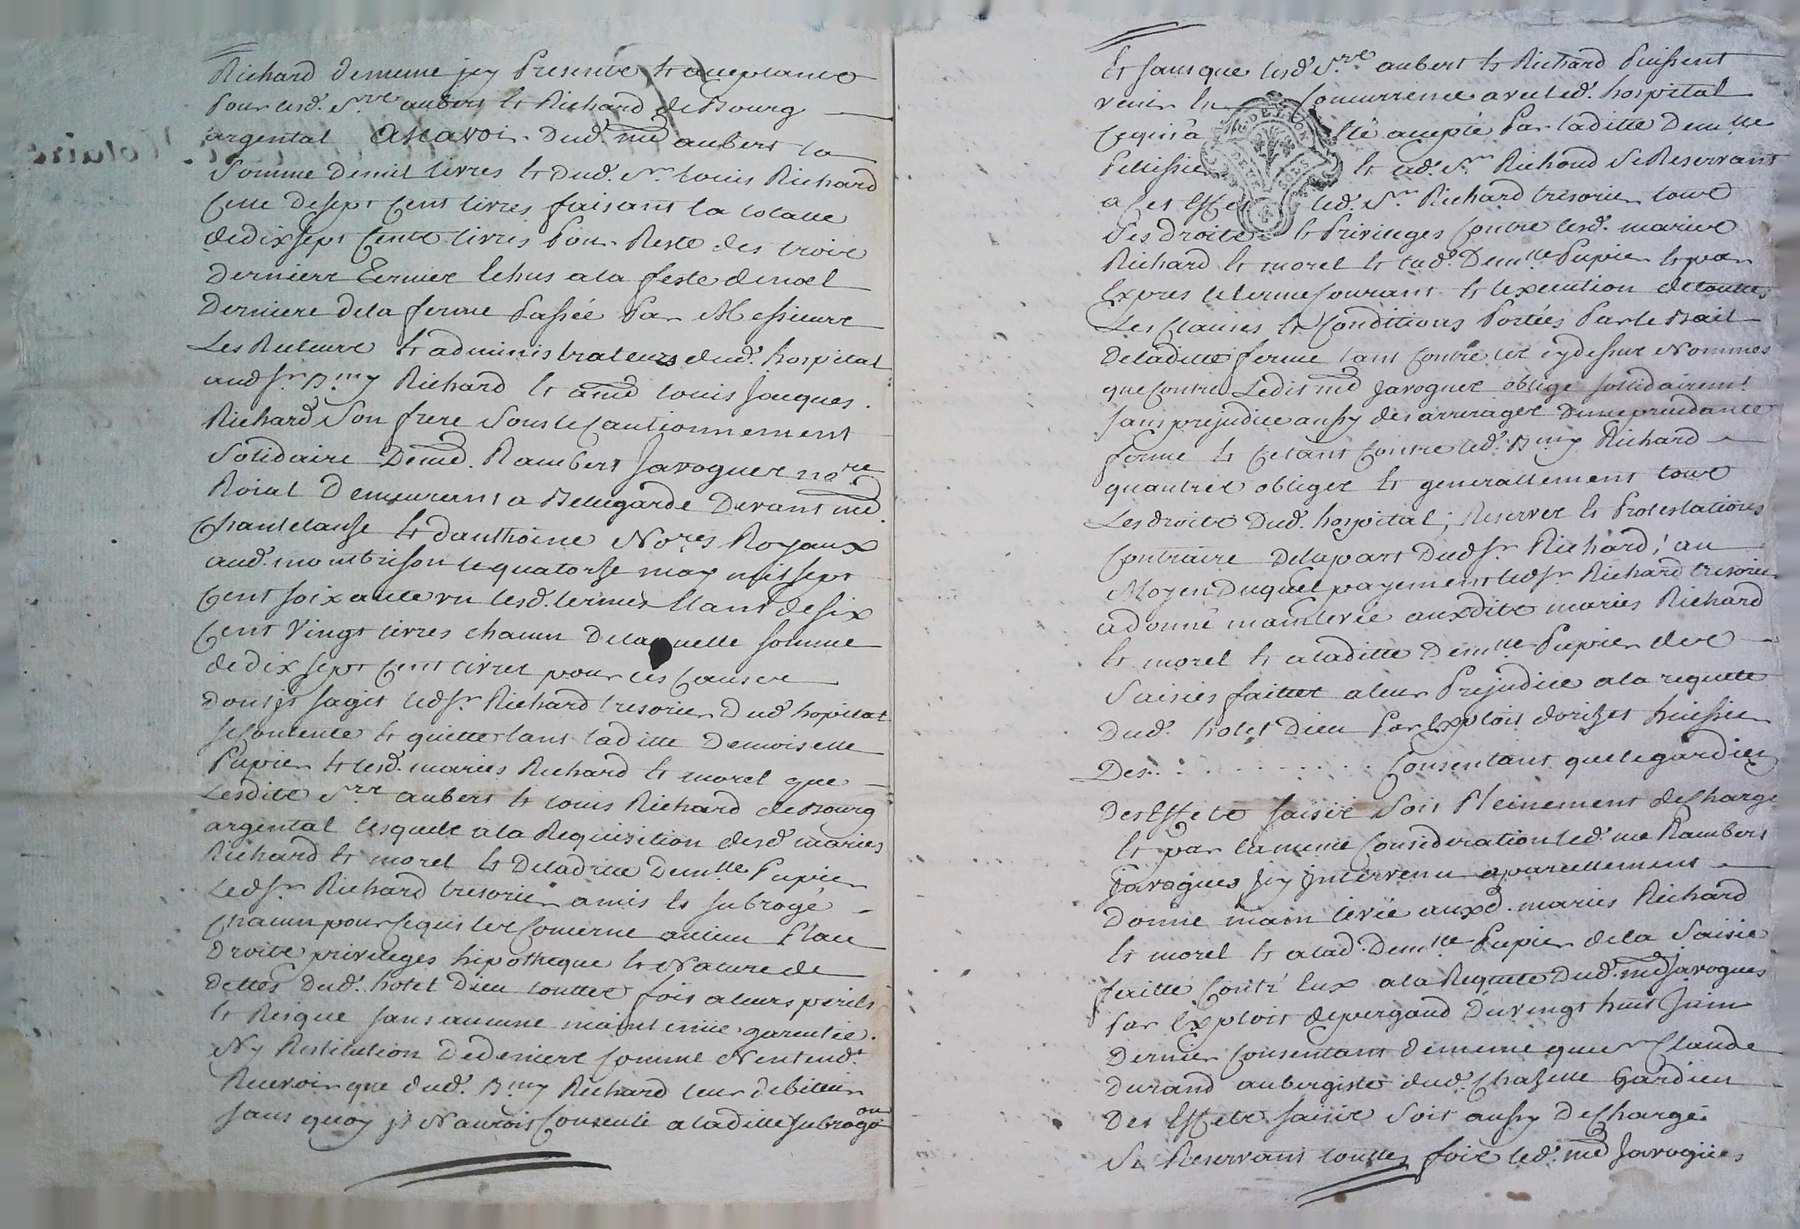 Richard dememe jcy Presente & acceptante
Pour lesd. Srs aubert & Richard de Bourg
argental ascavoir dud. me aubert la
Somme demil livres & dud. Sr. Louis Richard
Celle desept Cent livres faisant la totalle
dedixsept Cents livres Pour Reste des trois
derniers termes Echus ala feste denoel
derniere dela ferme Passée Par Messieurs
Les Recteurs & administrateurs dud. hospital
audsr. Bmy Richard & a me louis Jacques
Richard Son frere Sous le Cautionnement
Solidaire deme. Rambert Javogues nore
Roial demeurant a Bellegarde devant me.
Chantelauze & danthoine Nores Royaux
aud. montbrison le quatorse may mil sept
Cent soixante un lesd. termes Etant de six
Cent Vingt livres chacun delaquelle somme
dedixsept Cent livres pour les Causes
dont jl sagit ledsr. Richard tresorier dud hopital
se Contente & quitte tant laditte demoiselle
Pupier & lesd. mariés Richard & morel que
Lesdits Srs aubert & louis Richard de Bourg
argental lesquels ala Requisition desd. mariés
Richard & morel & deladitte demlle Pupier
Ledsr. Richard tresorier amis & subrogé
Chacun pour cequi les Concerne aulieu Place
droits privileges hipotheque & Nature de
dettes dud. hotel dieu touttes fois aleurs perils
& Risque sans aucune maintenüe garentie
Ny Restitution dedeniers Comme Nentendt.
Recevoir que dud. Bmy Richard leur debiteur
sans quoy jl Nauroit Consenti a laditte subrogaon
Et sans que lesd. Srs aubert & Richard Puissent
venir En Concurrence avec led. hospital
Cequi a Eté accepté Par laditte demlle
& led. Sr. Richard Se Reservant
a Cet Effet led. Sr. Richard tresorier tous
Ses droits & Privileges Contre lesd. mariés
Richard & morel & lad. demlle Pupier & par
Exprès le terme Courant & lexecution detouttes
Les Clauses & Conditions Portées Parle Bail
deladitte ferme tant Contre les cydessus Nommés
que Contre Ledit me Javogues obligé solidairemt.
sans prejudice aussy des arrerages dune precedante
ferme & Cetant Contre led. Bmy Richard
quautres obligés & generallement tous
Les droits dud. hospital; Reserves & Protestations
Contraire delapart dudsr. Richard; au
Moyen duquel payement ledsr. Richard tresorier
adonné mainlevée auxdits mariés Richard
& morel & aladitte demlle Pupier des
Saisies faittes aleur Prejudice ala requette
dud. hotel dieu Par Exploit huissier
Des. . . . . . . . . . . . Consentant que le gardien
des Effets saisis Soit Pleinement dechargé
& par lameme Consideration led. me Rambert
Javogues jcy jntervenu apareillement
donné main levée auxd. mariés Richard
& morel & alad. demlle Pupier dela Saisie
faitte Contr' Eux ala Requette dud. me Javogues
Par Exploit depergaud du vingt huit Juin
dernier Consentant dememe que Sr Claude
durand aubergiste dud. Chaselle Gardien
des Effets saisis Soit aussy dechargé
Se Reservant touttes fois led. me Javogues